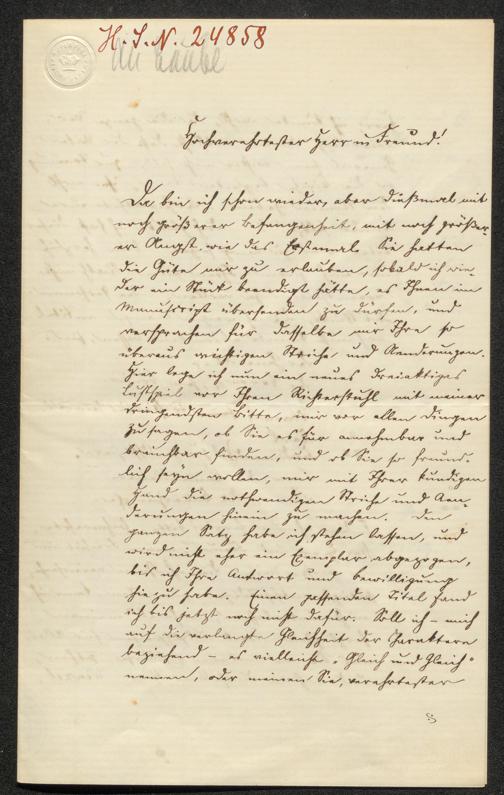 H. I. N. 24858
An Laube
Hochverehrtester Herr u Freund!
Da bin ich schon wieder, aber dießmal mit
noch größerer Befangenheit, mit noch größer-
er Angst wie das Erstemal. Sie hatten
die Güte mir zu erlauben, sobald ich wie-
der ein Stück beendigt hätte, es Ihnen im
Manuscript übersenden zu dürfen, und
versprachen für dasselbe mir Ihre so
überaus wichtigen Striche und Aenderungen.
Hier lege ich nun ein neues dreiaktiges
Lustspiel vor Ihren Richterstuhl mit meiner
dringendsten Bitte, mir vor allen Dingen
zu sagen, ob Sie es für annehmbar und
brauchbar finden, und ob Sie so freund-
lich seyn wollen, mir mit Ihrer kundigen
Hand die nothwendigen Striche und Aen-
derungen hinein zu machen. Den
ganzen Satz habe ich stehen lassen, und
wird nicht eher ein Exemplar abgezogen,
bis ich Ihre Antwort und Bewilligung
hiezu habe. Einen passenden Titel fand
ich bis jetzt noch nicht dafür. Soll ich – mich
auf die verlangte Gleichheit der Charaktere
beziehend – es vielleicht „Gleich und Gleich"
nennen, oder meinen Sie, verehrtester